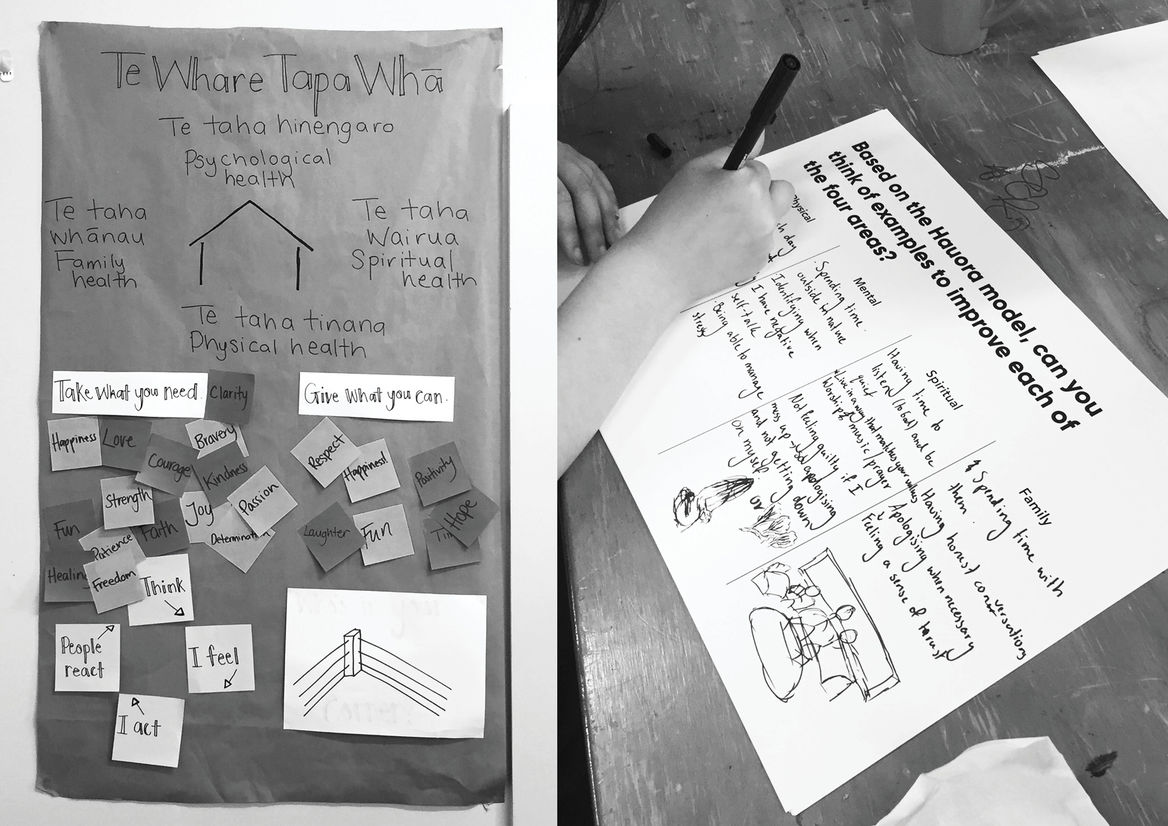 Te Whare Tapa Whā
Te taha hinengaro
Psychological
health
Te taha
whānau
Family
health
Te taha
Wairua
Spiritual
health
Te taha tinana
Physical health
Take what you need.
Clarity
Give what you can.
Happiness
Love
Bravery
Courage
Kindness
Strength
Passion
Joy
Fun
Faith
Patience
Determination
Healing
Freedom
Think
People
react
I feel
I act
Respect
Happiness!
Positivity
Laughter
Fun
Hope
Based on the Hauora model, can you
think of examples to improve each of
the four areas?
day
Mental
Spending time
outside in nature
Identifying when
I have negative
self-talk
Being able to manage
stress
Spiritual
Having time to
listen (to God) and be
quiet
Living in a way that matches your values
Worship music/prayer
Not feeling guilty if I
mess up - apologising
and not getting down
on myself
Family
Spending time with
them.
Having honest conversations
Apologising when necessary
Feeling a sense of